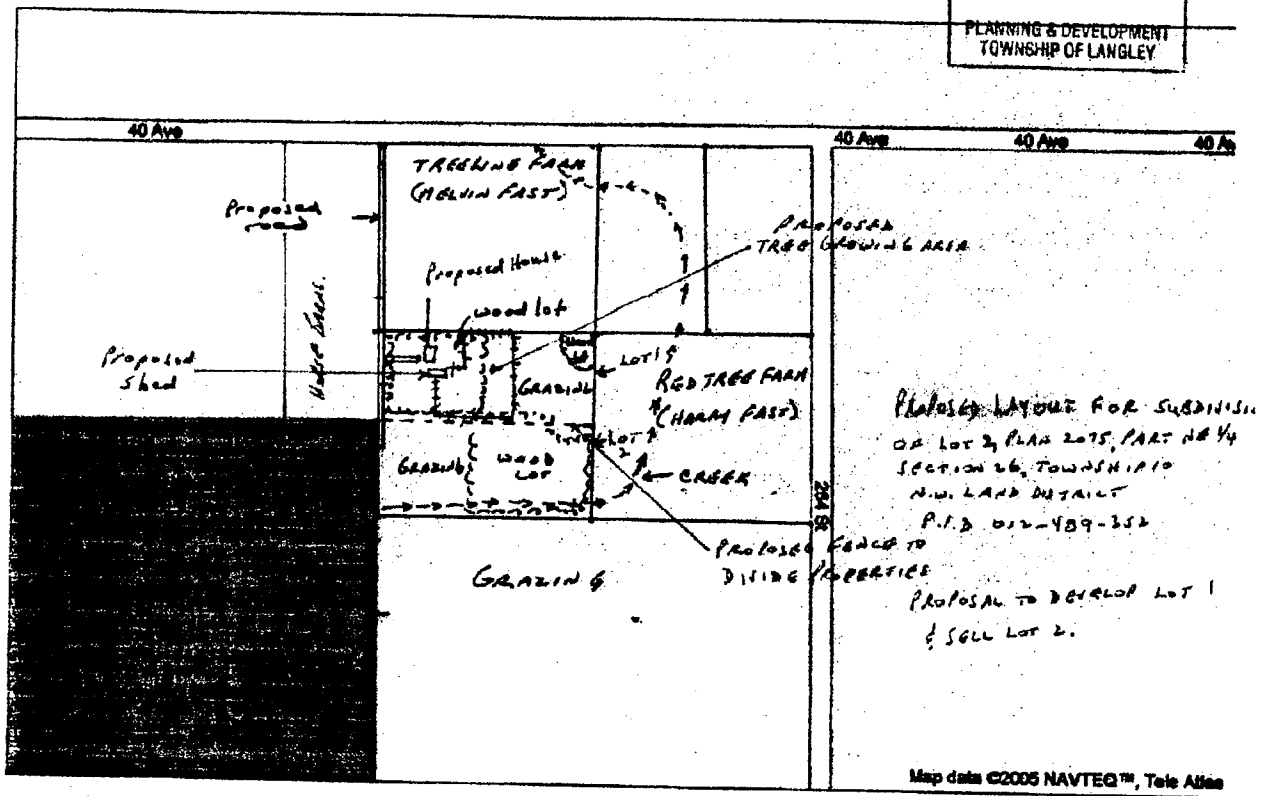 PLANNING & DEVELOPMENT
TOWNSHIP OF LANGLEY
40 Ave
40 Ave
40 Ave
40 Av
TREELINE FARM
(MELVIN FAST)
Proposed
road
PROPOSED
TREE GROWING AREA
Proposed House
wood lot
HORSE BARNS.
Proposed
Shed
LOT 1
GRAZING
RED TREE FARM
(HARRY FAST)
LOT
2
GRAZING
WOOD
LOT
CREEK
264 St
PROPOSED FENCE TO
DIVIDE PROPERTIES
GRAZING
PROPOSED LAYOUT FOR SUBDIVISI
OF LOT 2, PLAN 2075, PART NE 1/4
SECTION 26, TOWNSHIP 10
N.W. LAND DISTRICT
P.I.D 012-489-352
PROPOSAL TO DEVELOP LOT 1
& SELL LOT 2.
Map data ©2005 NAVTEQ™, Tele Atlas